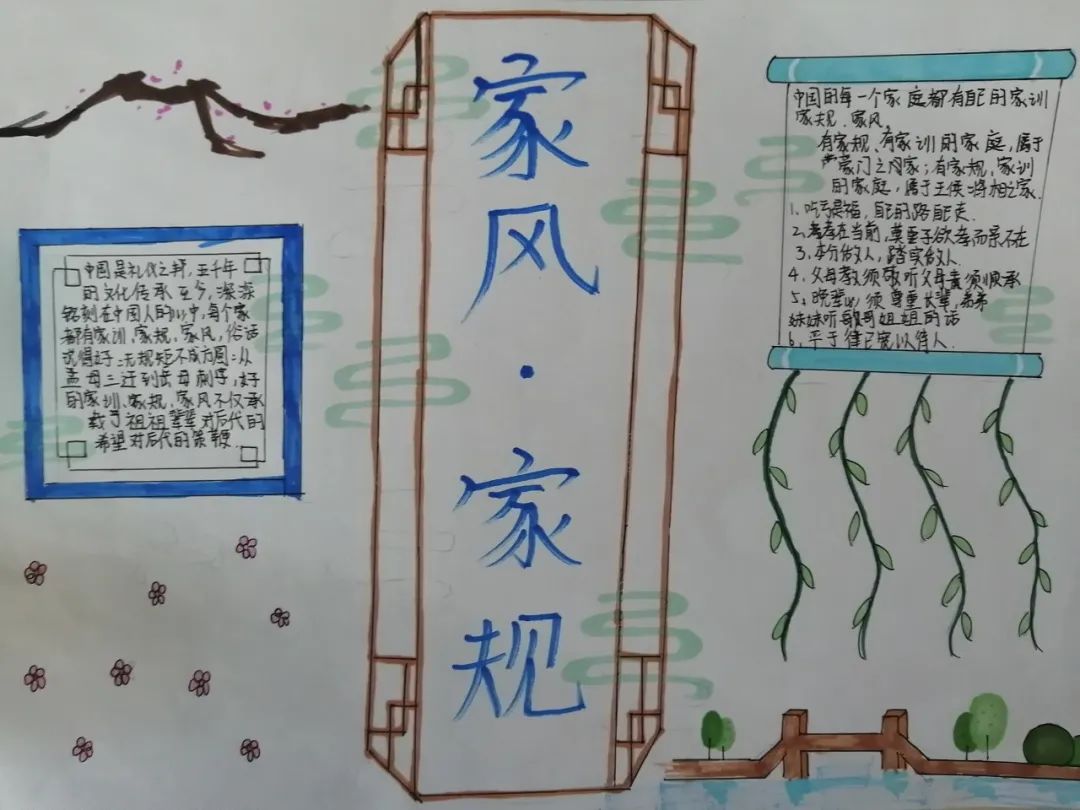 家风·家规
中国是礼仪之邦,五千年
的文化传承至今,深深
铭刻在中国人的心中,每个家
都有家训、家规、家风,俗话
说得好:无规矩不成方圆:从
孟母三迁到岳母刺字,好
的家训、家规、家风不仅承
载了祖祖辈辈对后代的
希望对后代的策鞭.
中国的每一个家庭都有自己的家训
家规.家风。
有家规、有家训的家庭,属于
豪门之内家;有家规、家训
的家庭,属于王侯将相之家.
1、吃亏是福,自己的路自己走.
2、孝在当前,莫重子欲孝而亲不在
3、本分做人,踏实做人.
4、父母教须敬听父母责须顺承
5、晚辈必须尊重长辈,弟弟
妹妹听哥哥姐姐的话
6、平于律己宽以待人.